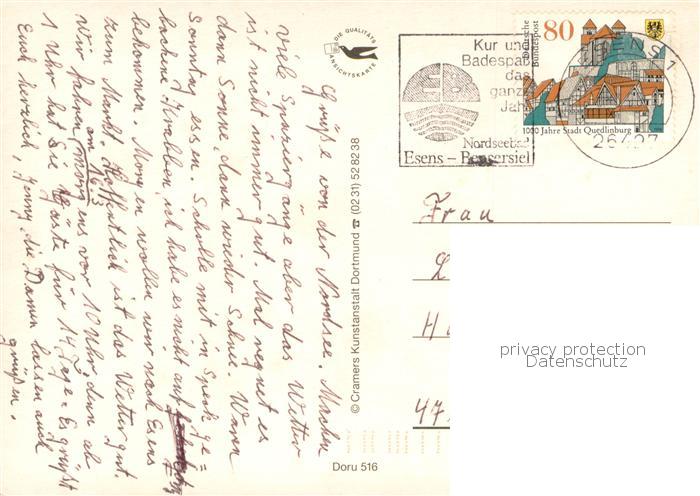 Grüße von der Nordsee. Machen
viel Spaziergange aber das Wetter
ist nicht immer gut. Mal regnet es
dann Sonne, dann wieder Schnee. Waren
Sonntag essen. Scholle mit in Speck ge=
backene Kwalben, ich habe es nicht auf
bekommen. Morgen wollen wir nach Esens
zum Markt. Hoffentlich ist das Wetter gut.
Wir fahren am 16.3 morgens vor 10 Uhr denn ab
1 Uhr hat Sie Gäste für 14 Tage. Es grüßt
Euch herzlich, Jenny, die Damen lassen auch
grüßen.
DIE QUALITÄTS
ANSICHTSKARTE
© Cramers Kunstanstalt Dortmund ☎ (02 31) 52 82 38
Doru 516
Kur und
Badespaß
das
ganze
Jahr
Nordseebad
Esens – Bensersiel
80
Deutsche
Bundespost
1000 Jahre Stadt Quedlinburg
ESENS 1
26427
Frau
L
H
47
privacy protection
Datenschutz